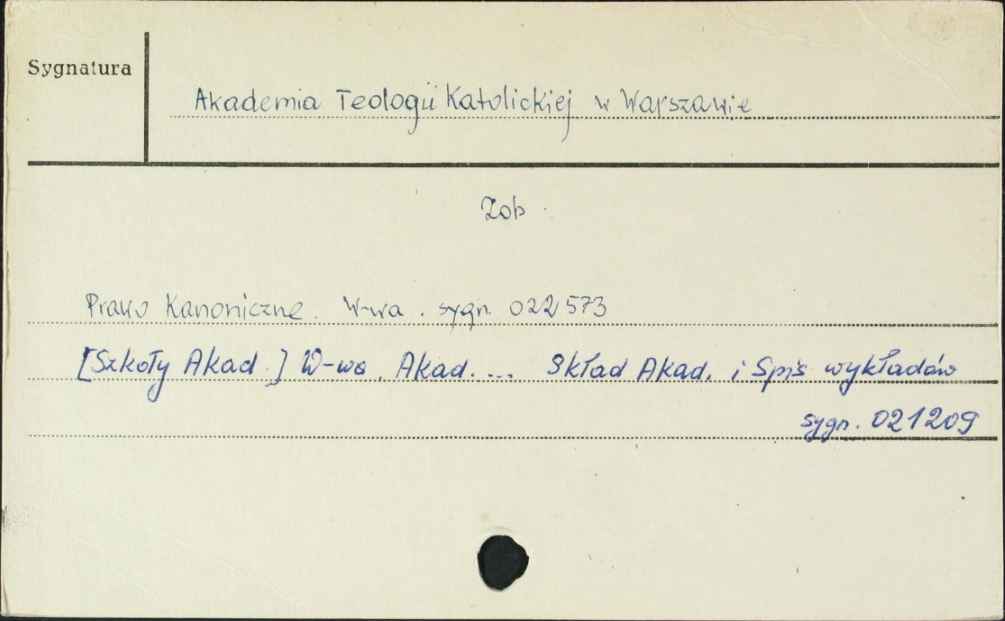 Sygnatura
Akademia Teologii Katolickiej w Warszawie
Zob.
Prawo Kanoniczne. W-wa. sygn. 022573
[Szkoły Akad.] W-wa. Akad. ... Skład Akad. i Spis wykładów
sygn. 021209